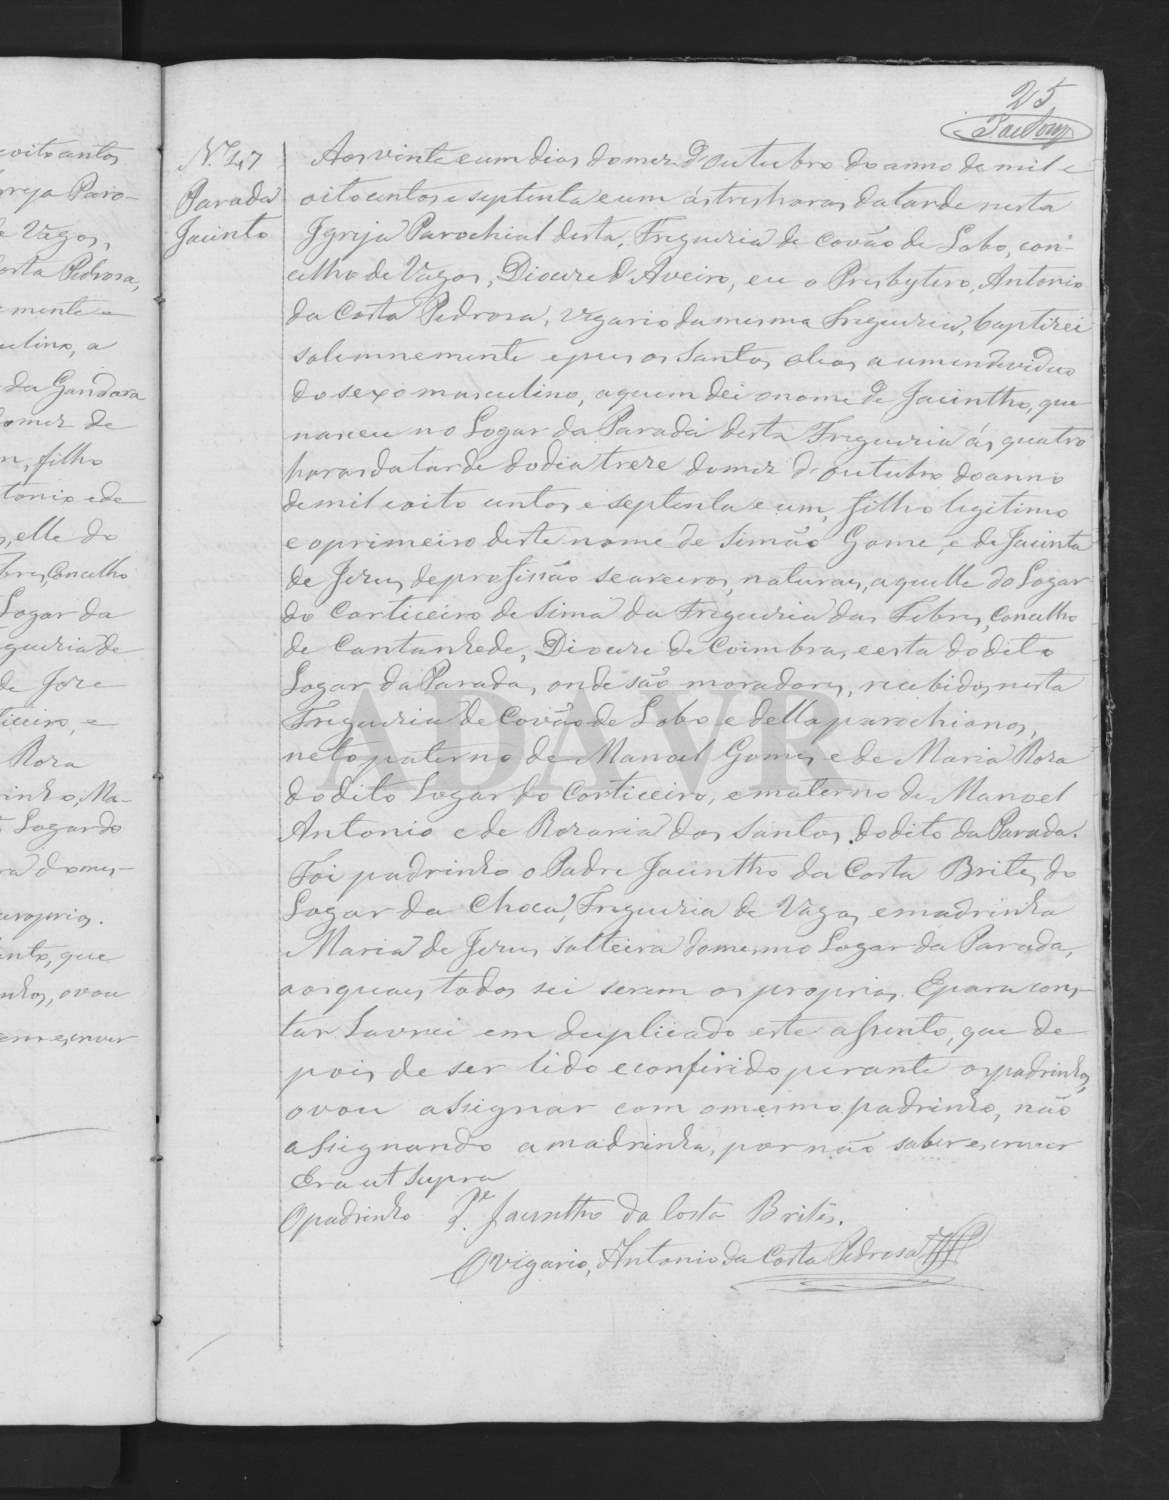 25
N.º 47
Parada
Jacinto
Aos vinte e um dias do mez d'Outubro do anno de mil e
oitocentos e septenta e um ás tres horas da tarde nesta
Igreja Parochial desta Freguezia de Covão de Lobo, con-
celho de Vagos, Diocese d'Aveiro, eu o Presbytero, Antonio
da Costa Pedrosa, vigario da mesma Freguezia, baptizei
solemnemente e puz os Santos oleos a um individuo
do sexo masculino, a quem dei o nome de Jacintho, que
nasceu no Logar da Parada desta Freguezia ás quatro
horas da tarde do dia treze do mez d'outubro do anno
de mil e oito centos e septenta e um, filho legitimo
e o primeiro deste nome de Simão Gome, e de Jacinta
de Jezus, de profissão seareiros, naturaes, aquelle do Logar
do Corticeiro de Sima da Freguezia das Febres, Concelho
de Cantanhede, Diocese de Coimbra, e esta do dito
Logar da Parada, onde são moradores, recebidos nesta
Freguezia de Covão de Lobo e della parochianos,
neto paterno de Manoel Gomes e de Maria Roza
do dito Logar do Corticeiro, e materno de Manoel
Antonio e de Rozaria dos Santos, do dito da Parada.
Foi padrinho o Padre Jacintho da Costa Brites, do
Logar da Choca, Freguezia de Vagos, e madrinha
Maria de Jezus, solteira do mesmo Logar da Parada,
aos quaes todos sei serem os proprios. E para cons-
tar lavrei em duplicado este assento, que de
pois de ser lido e conferido perante os padrinhos,
o vou assignar com o mesmo padrinho, não
assignando a madrinha, por não saber escrever
Era ut supra
O padrinho P.e Jacintho da Costa Brites.
O Vigario, Antonio da Costa Pedrosa
ADAVR
oito centos
greja Paro-
e Vagos,
osta Pedrosa,
mente e
culino, a
da Gandara
do mez de
m, filho
tonio e de
s, elle do
bres, Concelho
Logar da
guezia de
de Joze
ticeiro, e
Roza
rinho, Ma-
Logar do
ra do mes-
proprios.
ento, que
nhos, o vou
em escrever